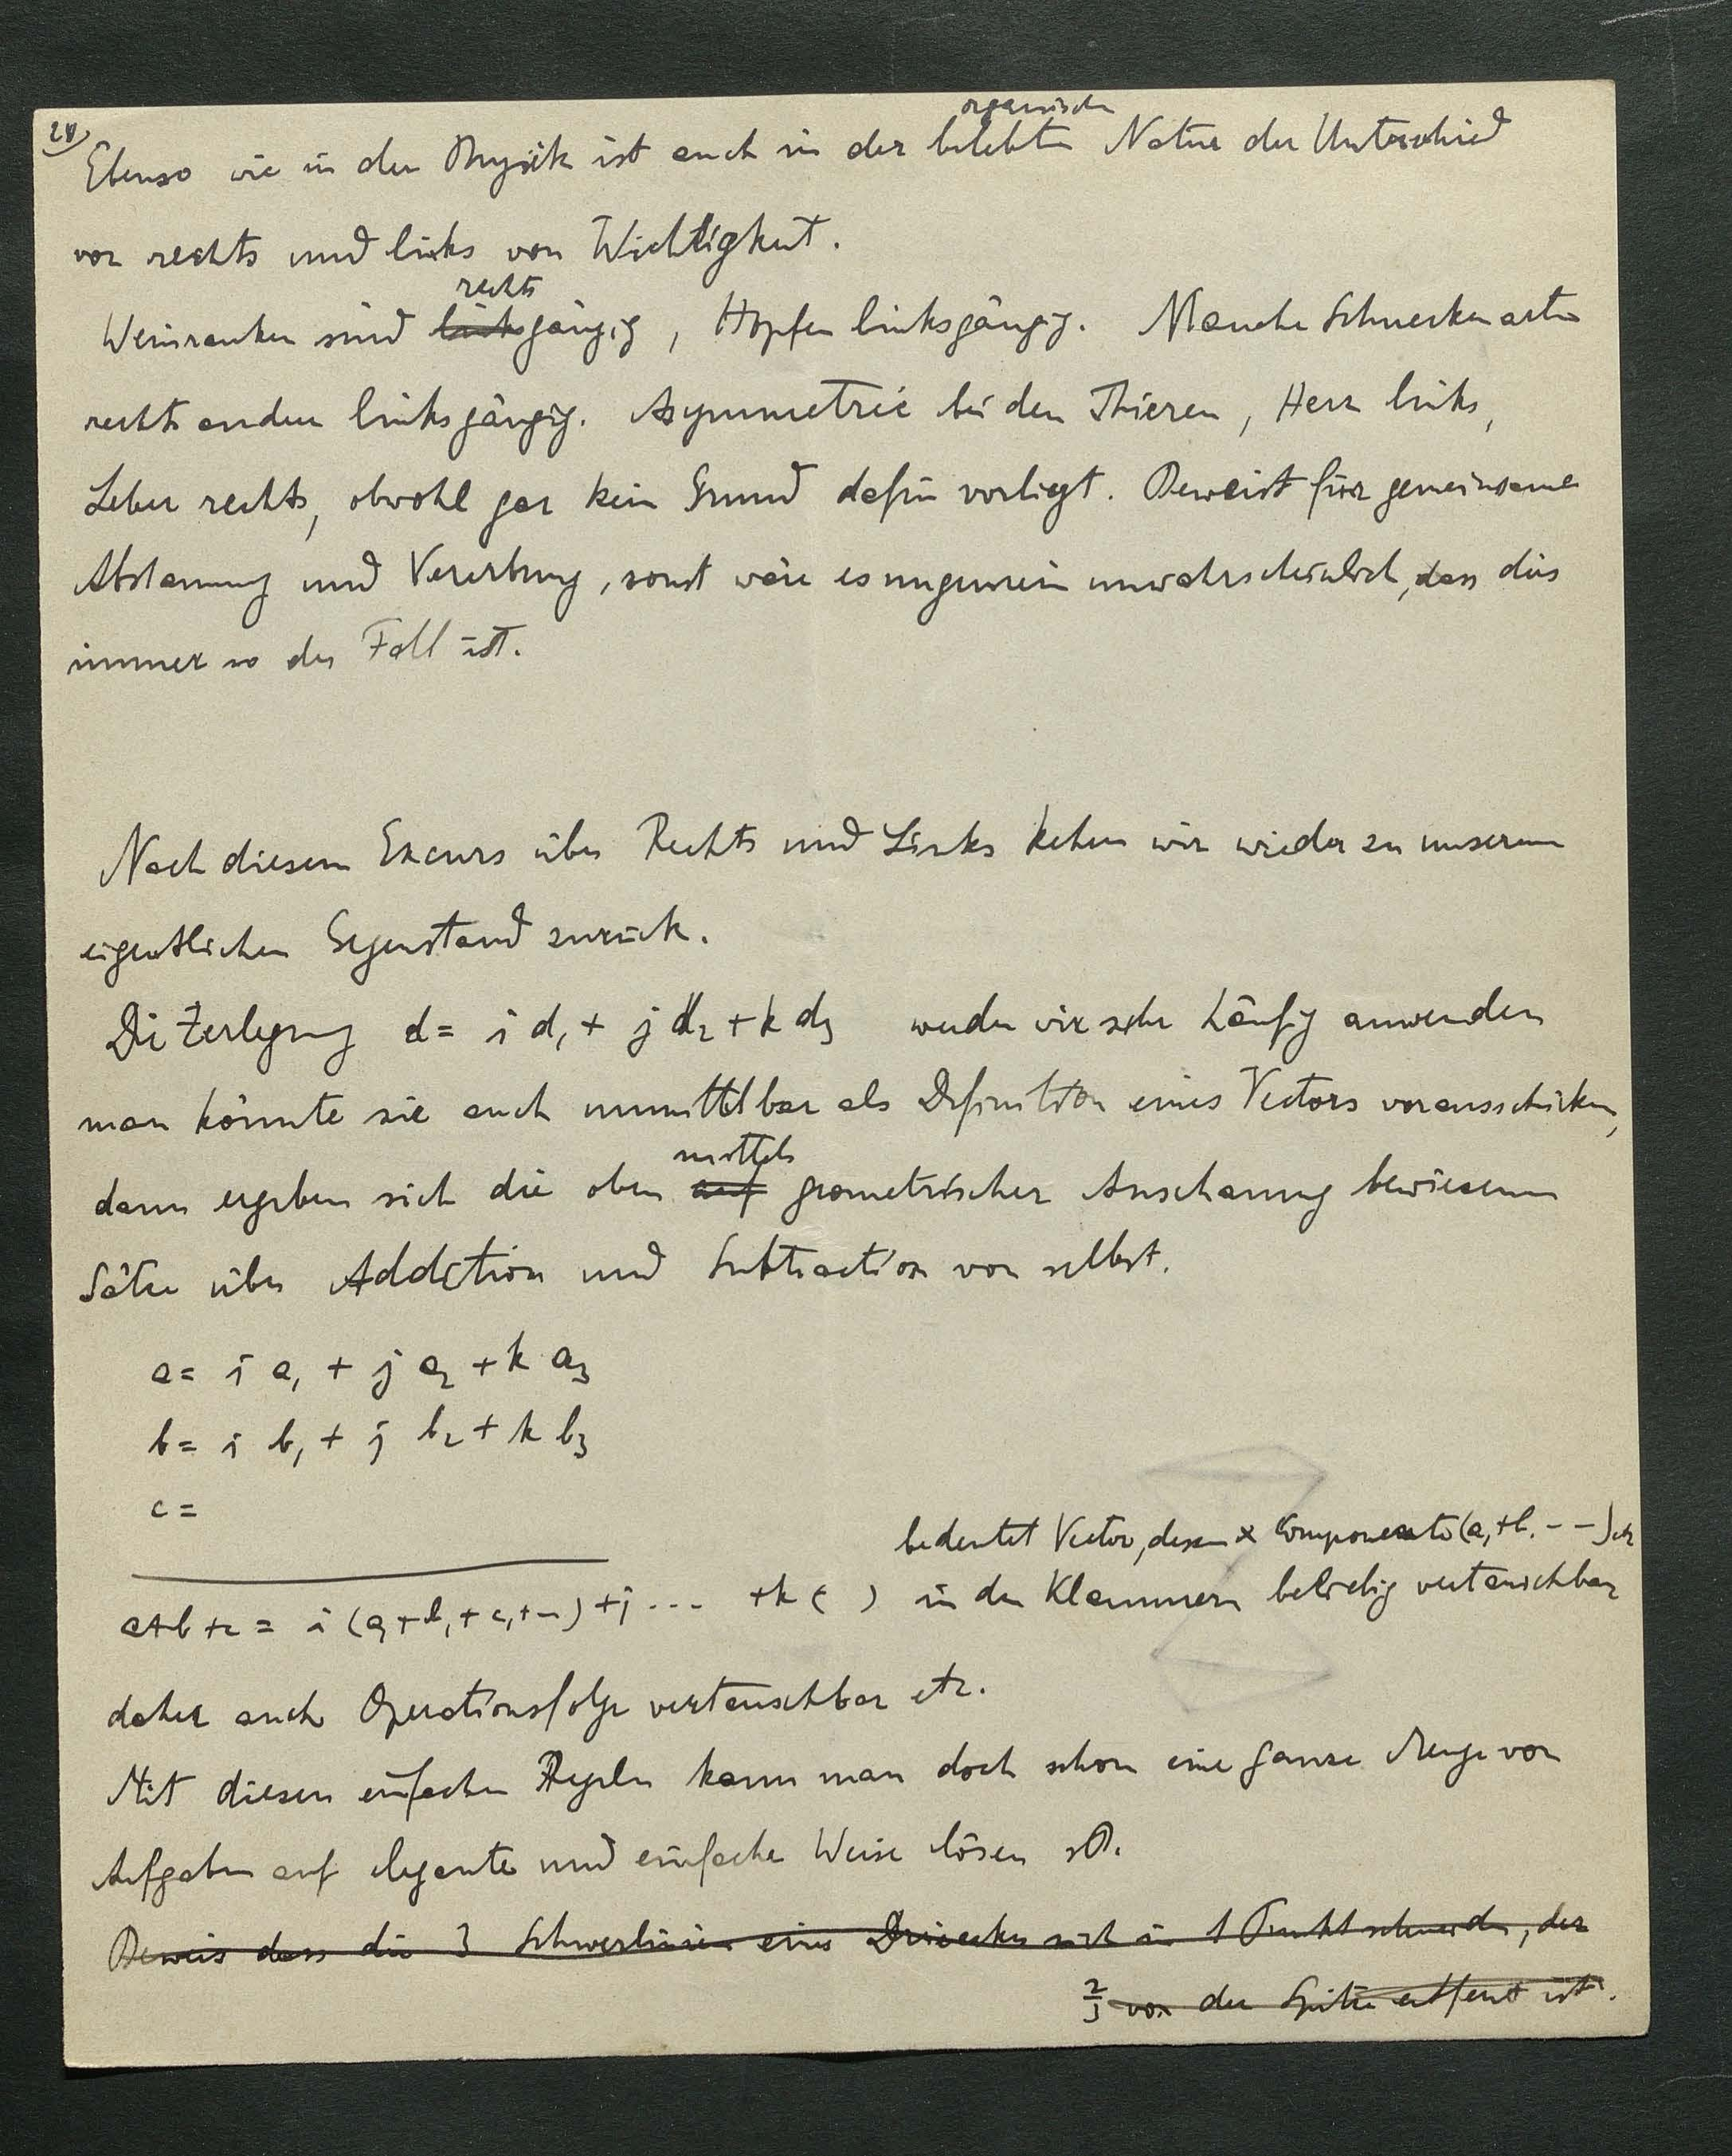 28)
organischen
Ebenso wie in der Physik ist auch in der belebten Natur der Unterschied
von rechts und links von Wichtigkeit.
rechts
Weinranken sind linksgängig, Hopfen linksgängig. Manche Schneckenarten
rechts andere linksgängig. Asymmetrie bei den Thieren, Herz links,
Leber rechts, obwohl gar kein Grund dafür vorliegt. Beweist für gemeinsame
Abstammung und Vererbung, sonst wäre es ungemein unwahrscheinlich, dass dies
immer so der Fall ist.
Nach diesem Excurs über Rechts und Links kehren wir wieder zu unserem
eigentlichen Gegenstand zurück.
Die Zerlegung d = i d₁ + j d₂ + k d₃ werden wir sehr häufig anwenden
man könnte sie auch unmittelbar als Definition eines Vectors vorausschicken,
mittels
dann ergeben sich die oben auf geometrischer Anschauung bewiesenen
Sätze über Addition und Subtraction von selbst.
a = i a₁ + j a₂ + k a₃
b = i b₁ + j b₂ + k b₃
c =
bedeutet Vector, dessen x Componente (a₁+b₁ - - )
a+b+c = i (a₁+b₁+c₁+--) + j ... + k ( ) in den Klammern beliebig vertauschbar
daher auch Operationsfolge vertauschbar etc.
Mit diesen einfachen Regeln kann man doch schon eine ganze Menge von
Aufgaben auf elegante und einfache Weise lösen zB.
Beweis dass die 3 Schwerlinien eines Dreiecks sich in 1 Punkt schneiden, der
2/3 von der Spitze entfernt ist.